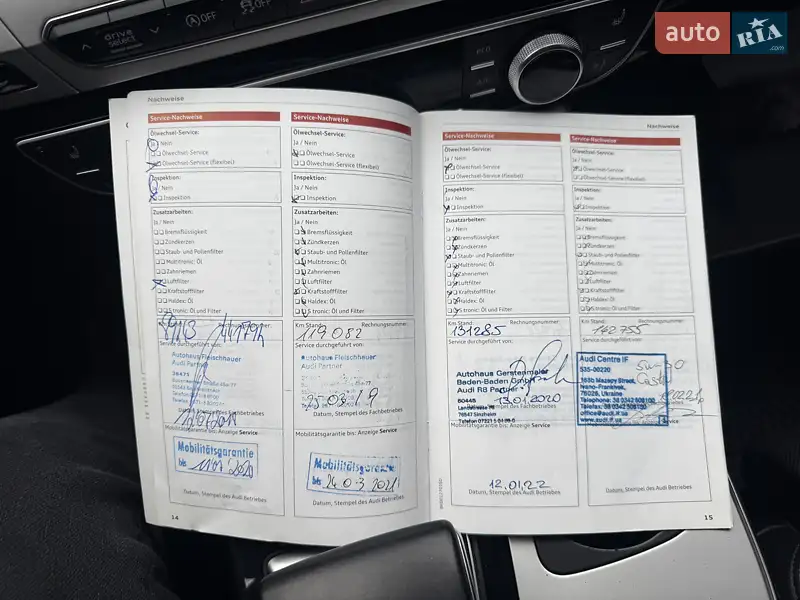 drive
select
OFF
OFF
auto
RIA
.com
Nachweise
Service-Nachweise
Ölwechsel-Service:
Ja / Nein
Ölwechsel-Service
Ölwechsel-Service (flexibel)
Inspektion:
Ja / Nein
Inspektion
Zusatzarbeiten:
Ja / Nein
Bremsflüssigkeit
Zündkerzen
Staub- und Pollenfilter
Multitronic: Öl
Zahnriemen
Luftfilter
Kraftstofffilter
Haldex: Öl
S tronic: Öl und Filter
Rechnungsnummer:
Service durchgeführt von:
Autohaus Fleischhauer
Audi Partner
Datum, Stempel des Fachbetriebes
Mobilitätsgarantie bis: Anzeige Service
Mobilitätsgarantie
bis
Datum, Stempel des Audi Betriebes
14
Service-Nachweise
Ölwechsel-Service:
Ja / Nein
Ölwechsel-Service
Ölwechsel-Service (flexibel)
Inspektion:
Ja / Nein
Inspektion
Zusatzarbeiten:
Ja / Nein
Bremsflüssigkeit
Zündkerzen
Staub- und Pollenfilter
Multitronic: Öl
Zahnriemen
Luftfilter
Kraftstofffilter
Haldex: Öl
S tronic: Öl und Filter
Km Stand: Rechnungsnummer:
119082
Service durchgeführt von:
Autohaus Fleischhauer
Audi Partner
25.03.19
Datum, Stempel des Fachbetriebes
Mobilitätsgarantie bis: Anzeige Service
Mobilitätsgarantie
bis 24.03.2021
Datum, Stempel des Audi Betriebes
Nachweise
Service-Nachweise
Ölwechsel-Service:
Ja / Nein
Ölwechsel-Service
Ölwechsel-Service (flexibel)
Inspektion:
Ja / Nein
Inspektion
Zusatzarbeiten:
Ja / Nein
Bremsflüssigkeit
Zündkerzen
Staub- und Pollenfilter
Multitronic: Öl
Zahnriemen
Luftfilter
Kraftstofffilter
Haldex: Öl
S tronic: Öl und Filter
Km Stand: Rechnungsnummer:
131285
Service durchgeführt von:
Autohaus Gerstenmaier
Baden-Baden GmbH
Audi R8 Partner
13.01.2020
76547 Sinzheim
Datum, Stempel des Fachbetriebes
Mobilitätsgarantie bis: Anzeige Service
12.01.22
Datum, Stempel des Audi Betriebes
Service-Nachweise
Ölwechsel-Service:
Ja / Nein
Ölwechsel-Service
Ölwechsel-Service (flexibel)
Inspektion:
Ja / Nein
Inspektion
Zusatzarbeiten:
Ja / Nein
Bremsflüssigkeit
Zündkerzen
Staub- und Pollenfilter
Multitronic: Öl
Zahnriemen
Luftfilter
Kraftstofffilter
Haldex: Öl
S tronic: Öl und Filter
Km Stand: Rechnungsnummer:
142755
Service durchgeführt von:
Audi Centre IF
S35-00220
163b Mazepy Street,
Ivano-Frankivsk,
76026, Ukraine
Telephone: 38 0342 508100
Telefax: 38 0342 508100
office@audi.if.ua
www.audi.if.ua
Service
Datum, Stempel des Audi Betriebes
15